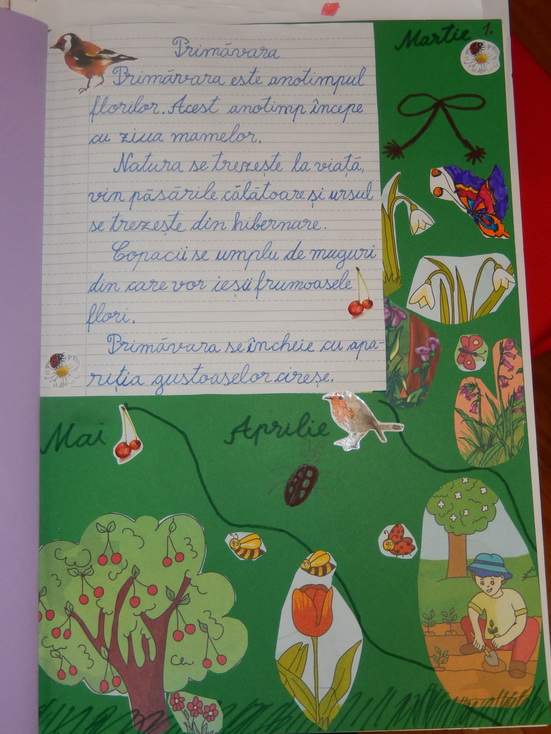 Primăvara
Primăvara este anotimpul
florilor. Acest anotimp începe
cu ziua mamelor.
Natura se trezește la viață,
vin păsările călătoare și ursul
se trezește din hibernare.
Copacii se umplu de muguri
din care vor ieși frumoasele
flori.
Primăvara se încheie cu apa-
riția gustoaselor cireșe.
Martie 1.
Aprilie
Mai